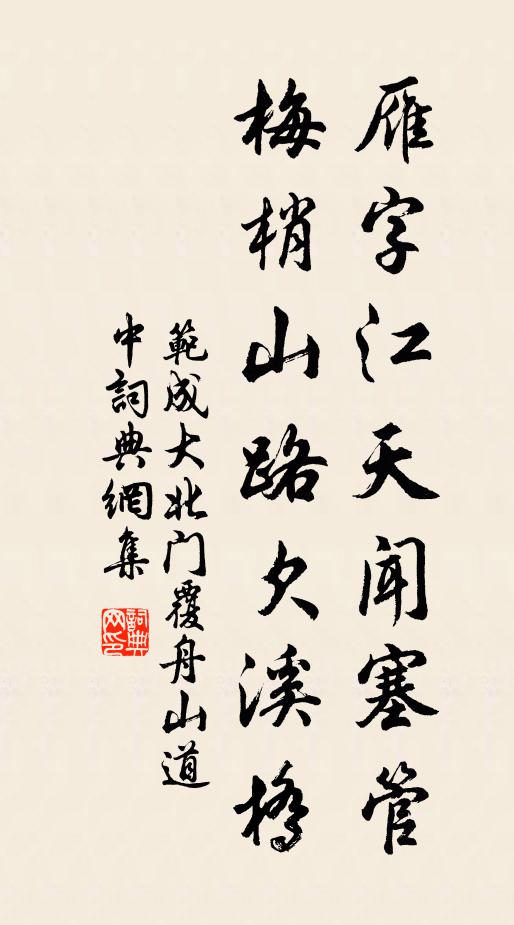 雁字江天闻塞管
梅梢山路欠溪橋
範成大北门覆舟山道
中詞典網集
詞典网印